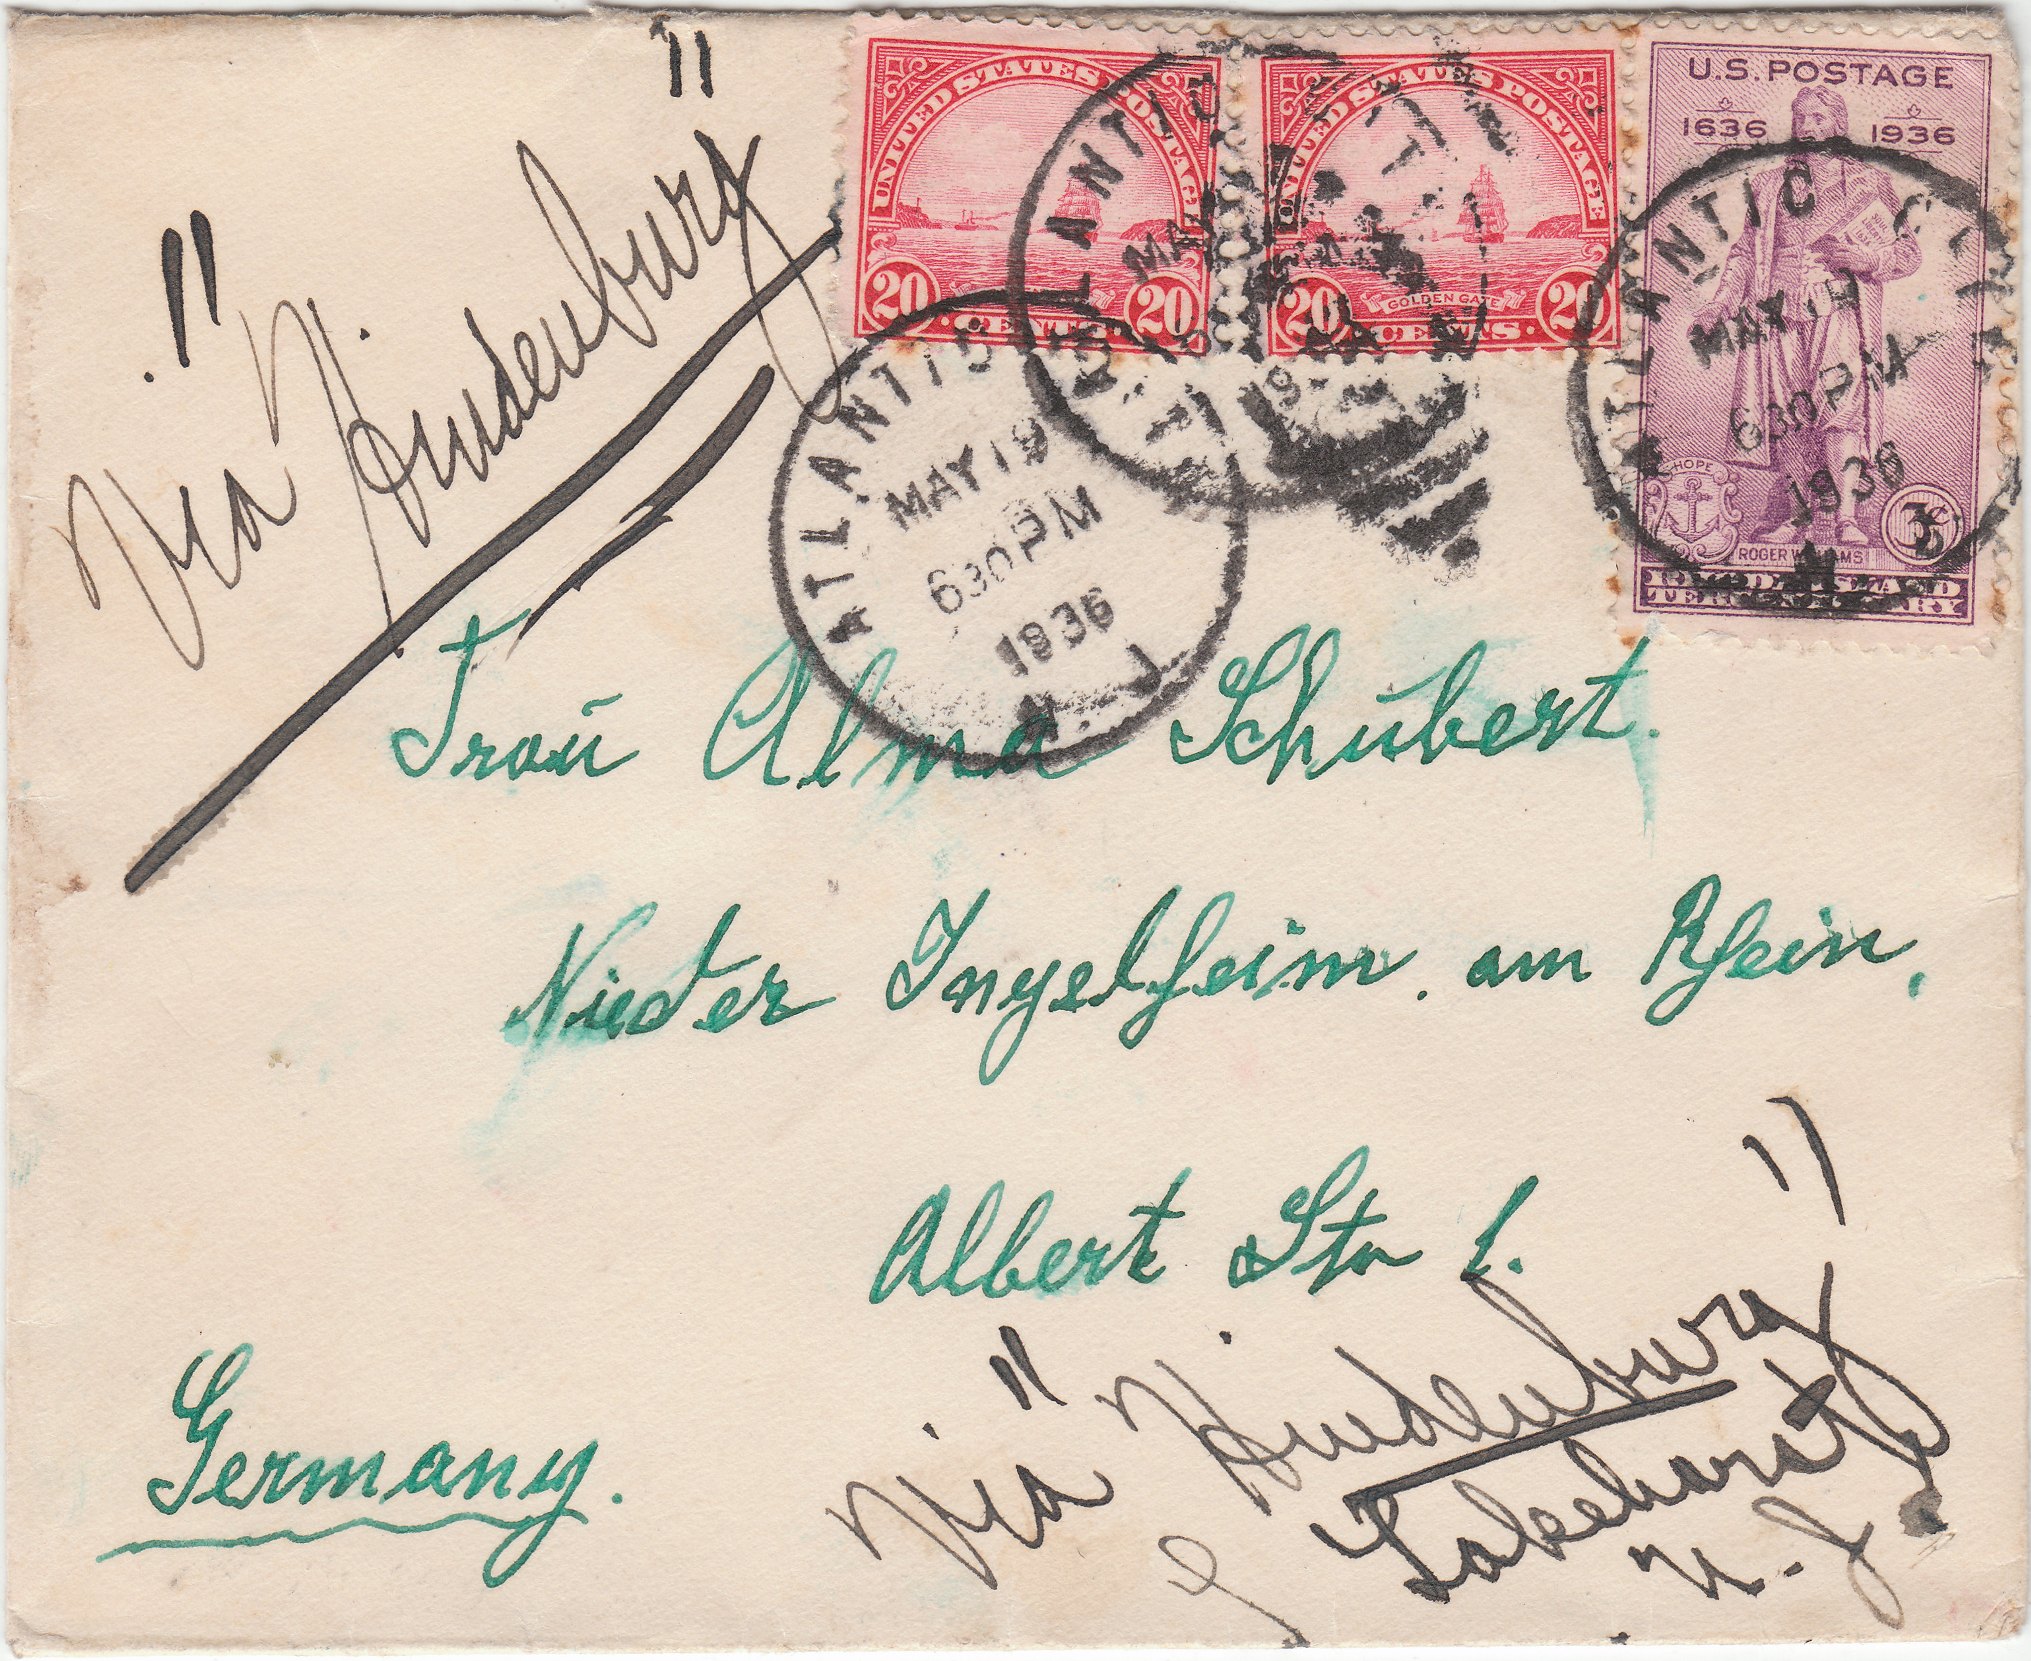 "Via Hindenburg"
UNITED STATES POSTAGE
20 CENTS 20
UNITED STATES POSTAGE
GOLDEN GATE
20 CENTS 20
U.S. POSTAGE
1636 1936
HOPE
3¢
ROGER WILLIAMS
RHODE ISLAND
TERCENTENARY
ATLANTIC
MAY 19
630 PM
1936
ATLANTIC
MAY
ATLANTIC CITY
MAY 19
630 PM
1936
Fraŭ Alma Schŭbert.
Nieder Ingelheim. am Rhein,
Albert Str 1.
Germany.
"Via Hindenburg"
Lakehurst
N. J.